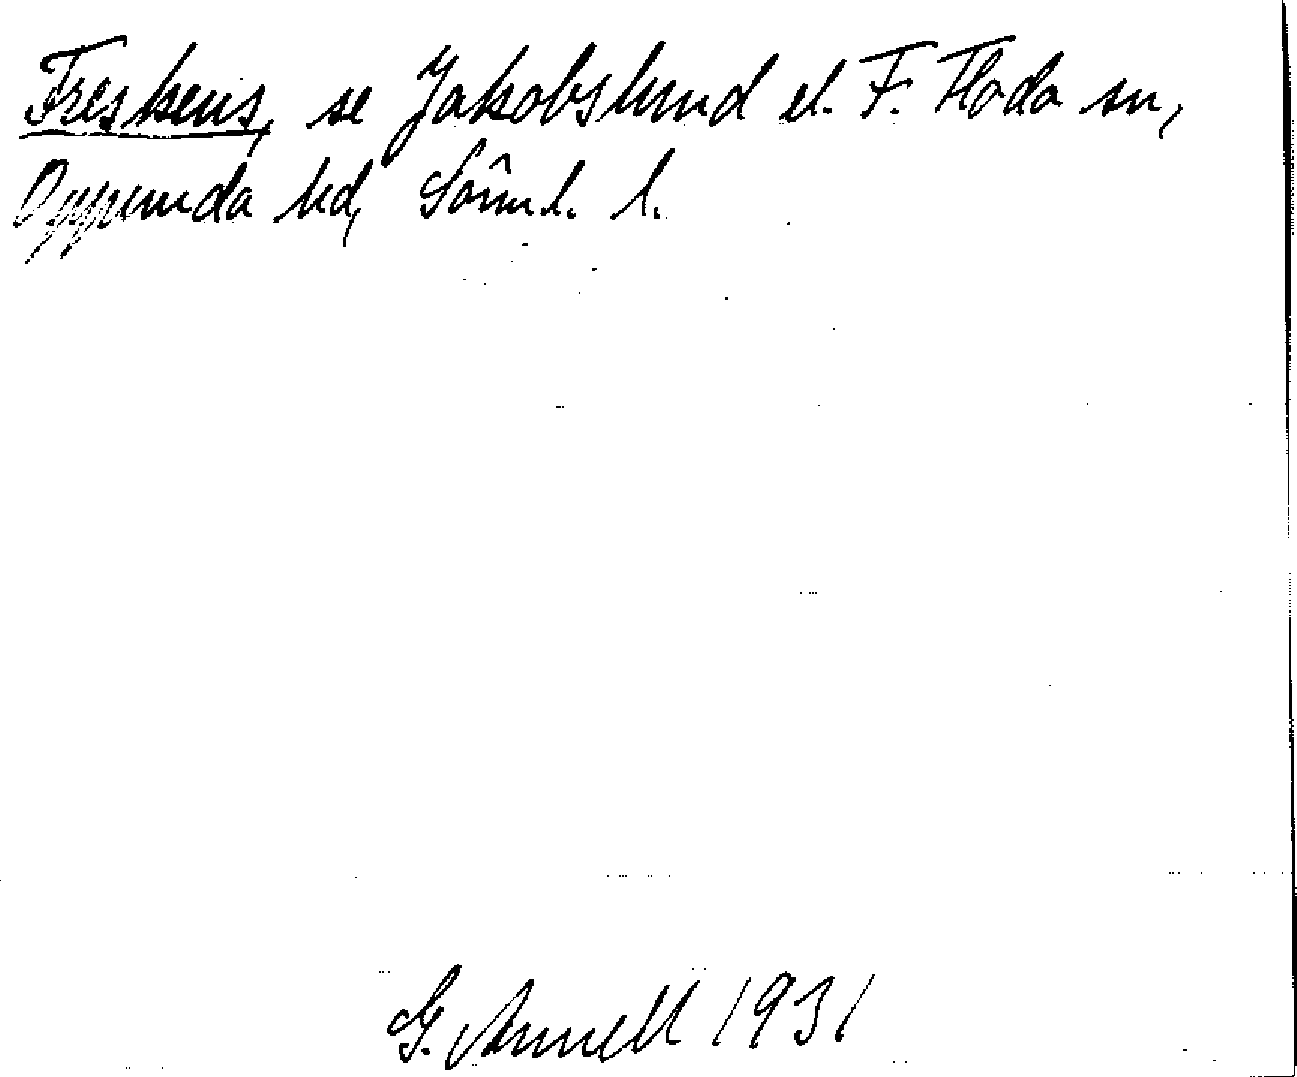 Freskens, se Jakobslund el. F. Floda sn,
Oppunda hd, Sörml. l.
G. Annell 1931